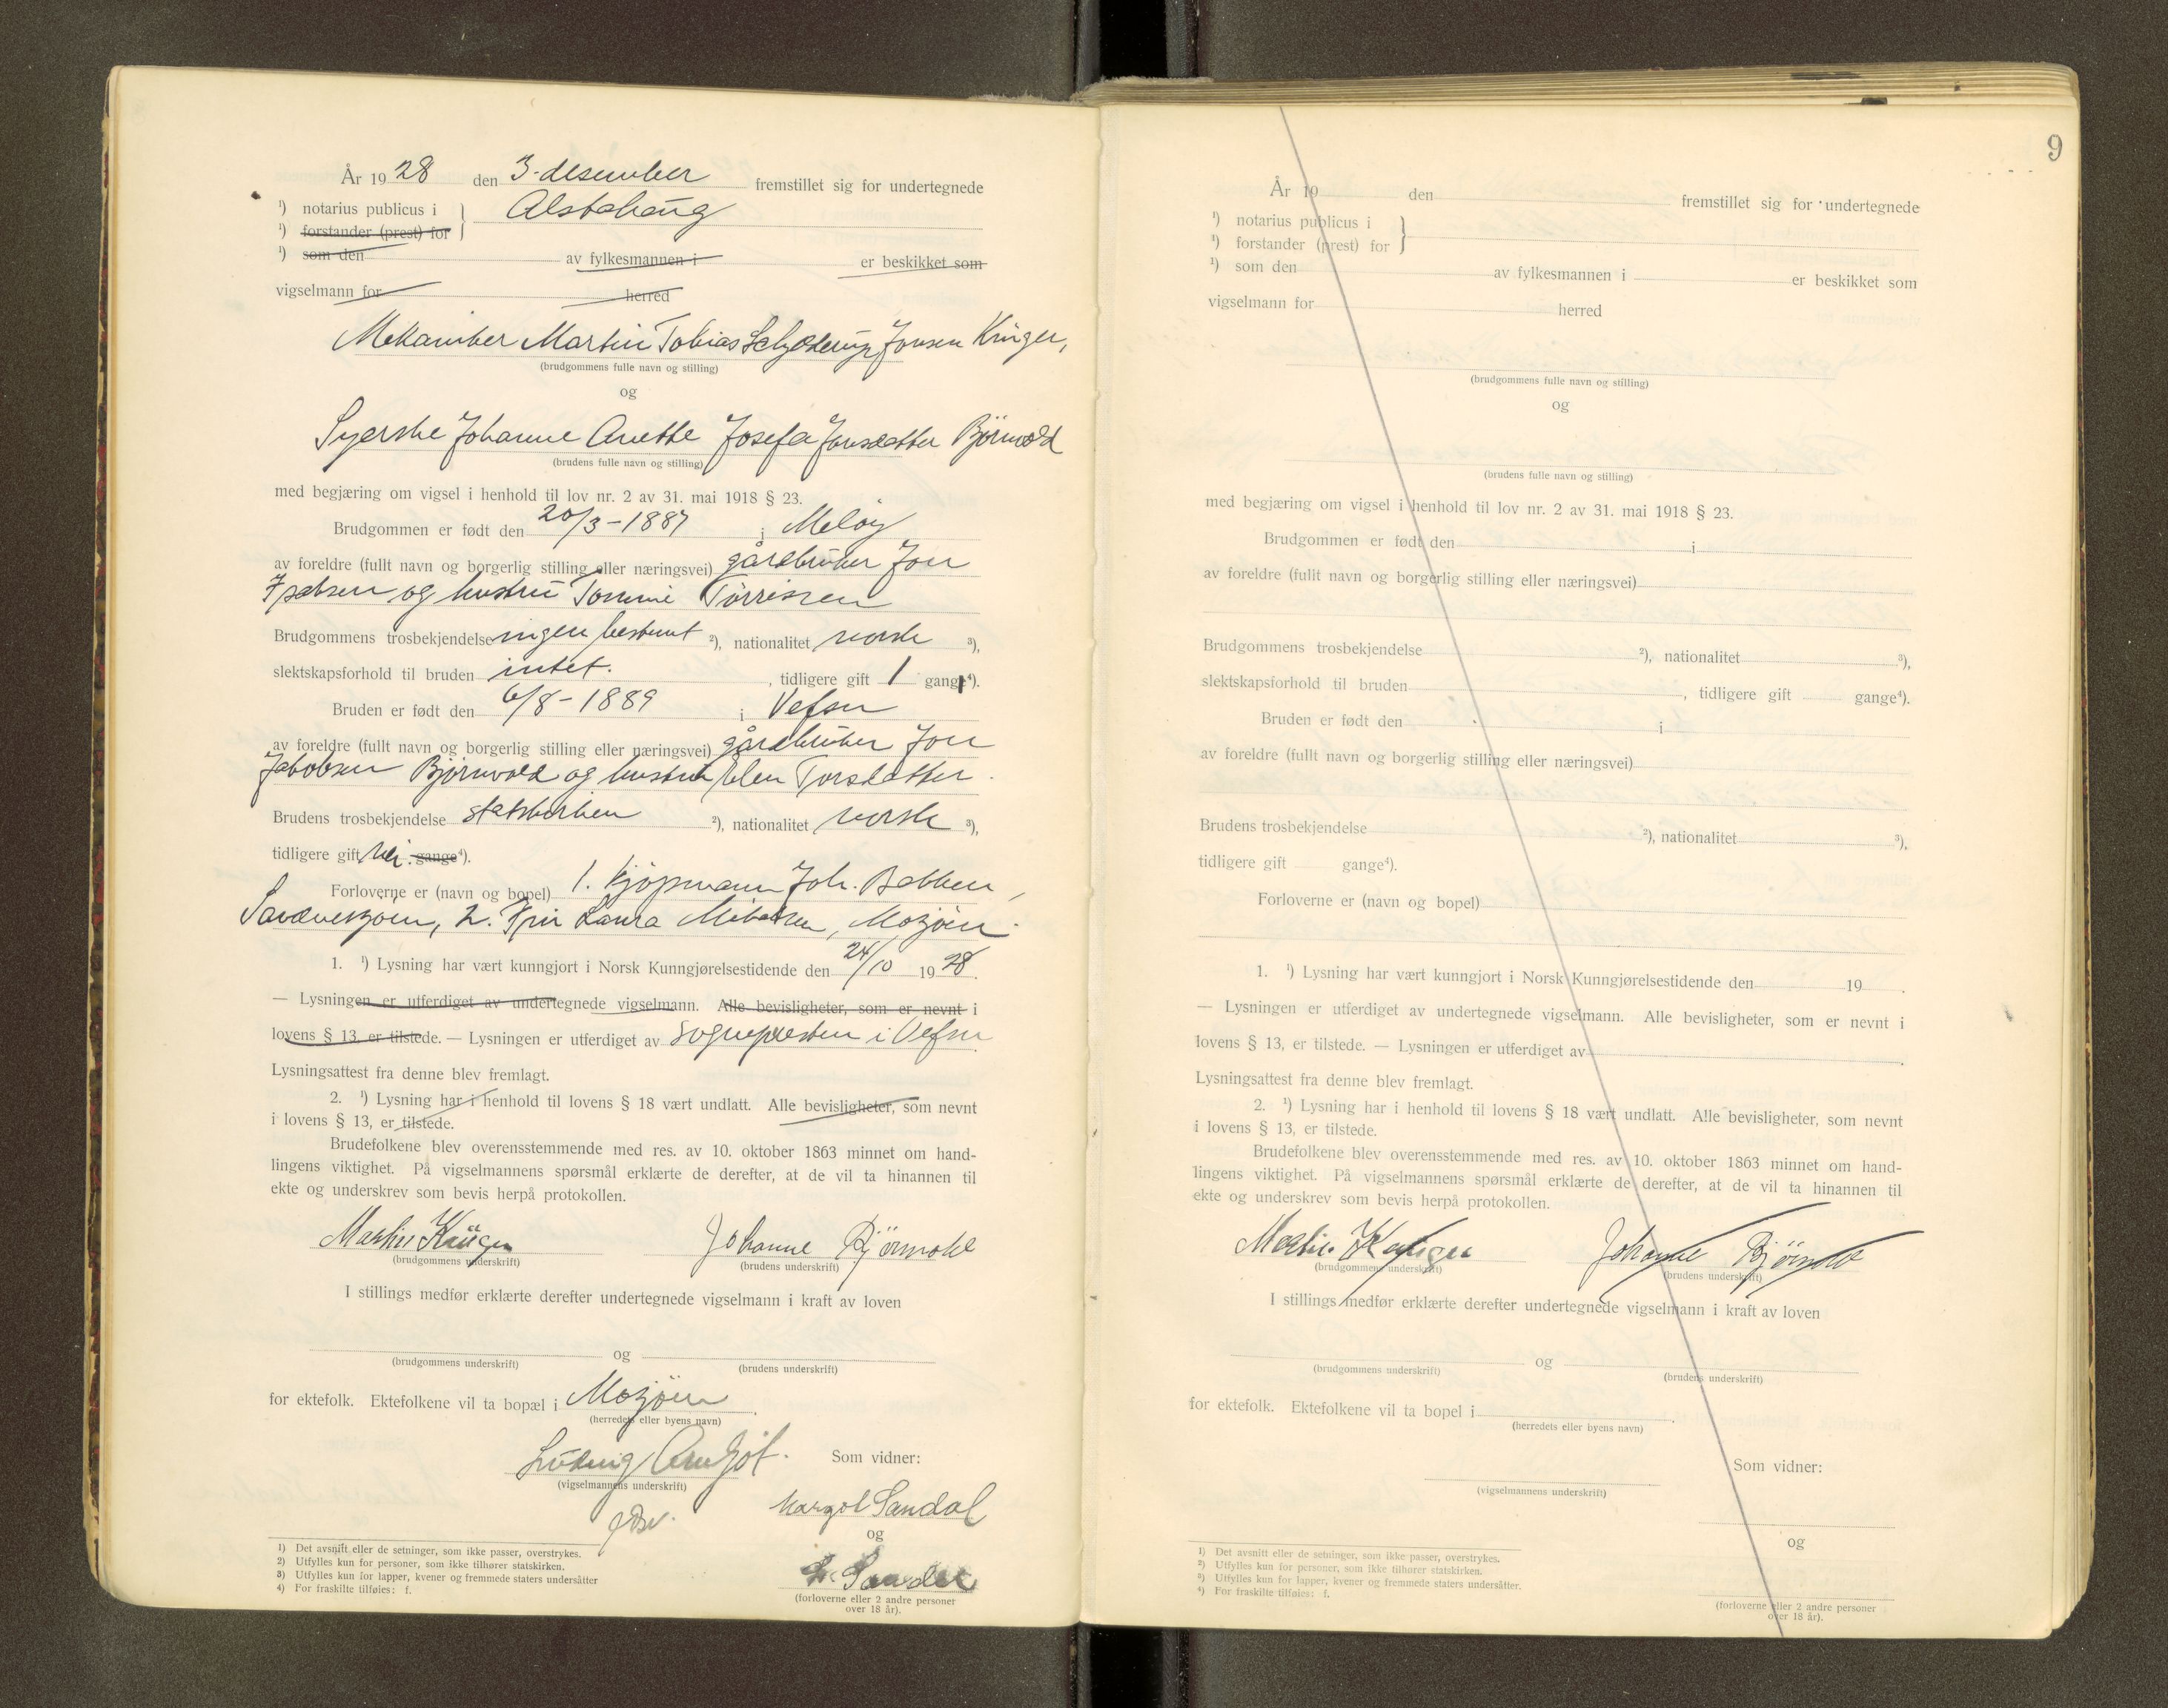 År 1928 den 3. desember fremstillet sig for undertegnede
¹) notarius publicus i } Alstahaug
¹) forstander (prest) for
¹) som den av fylkesmannen i er beskikket som
vigselmann for herred
Mekaniker Martin Tobias Schjelderup Jonsen Krüger,
(brudgommens fulle navn og stilling)
og
Syerske Johanne Anette Josefa Jonsdatter Björnvold
(brudens fulle navn og stilling)
med begjæring om vigsel i henhold til lov nr. 2 av 31. mai 1918 § 23.
Brudgommen er født den 20/3-1887 i Meløy
av foreldre (fullt navn og borgerlig stilling eller næringsvei) gårdbruker Jon
og hustru Tørrissen
Brudgommens trosbekjendelse ingen bestemt ²), nationalitet norsk ³),
slektskapsforhold til bruden intet. , tidligere gift 1 gang⁴).
Bruden er født den 6/8-1889 i Vefsn
av foreldre (fullt navn og borgerlig stilling eller næringsvei) gårdbruker Jon
Jakobsen Bjørnvold og hustru Elen Torsdatter.
Brudens trosbekjendelse statskirken ²), nationalitet norsk ³),
tidligere gift nei. gange⁴).
Forloverne er (navn og bopel) 1. kjøpmann Joh. Bakken,
Sandnessjøen, 2. Frü Laura Mikalsen, Mosjøen.
1. ¹) Lysning har vært kunngjort i Norsk Kunngjørelsestidende den 24/10 1928.
— Lysningen er utferdiget av undertegnede vigselmann. Alle bevisligheter, som er nevnt i
lovens § 13, er tilstede. — Lysningen er utferdiget av sognepresten i Vefsn
Lysningsattest fra denne blev fremlagt.
2. ¹) Lysning har i henhold til lovens § 18 vært undlatt. Alle bevisligheter, som nevnt
i lovens § 13, er tilstede.
Brudefolkene blev overensstemmende med res. av 10. oktober 1863 minnet om hand-
lingens viktighet. På vigselmannens spørsmål erklærte de derefter, at de vil ta hinannen til
ekte og underskrev som bevis herpå protokollen.
Martin Krüger Johanne Bjørnvold
(brudgommens underskrift) (brudens underskrift)
I stillings medfør erklærte derefter undertegnede vigselmann i kraft av loven
og
(brudgommens underskrift) (brudens underskrift)
for ektefolk. Ektefolkene vil ta bopæl i Mosjøen .
(herredets eller byens navn)
Ludvig Som vidner:
(vigselmannens underskrift)
Margot Sandal
og
(forloverne eller 2 andre personer
over 18 år).
1) Det avsnitt eller de setninger, som ikke passer, overstrykes.
2) Utfylles kun for personer, som ikke tilhører statskirken.
3) Utfylles kun for lapper, kvener og fremmede staters undersåtter
4) For fraskilte tilføies: f.
9
År 19 den fremstillet sig for undertegnede
¹) notarius publicus i }
¹) forstander (prest) for
¹) som den av fylkesmannen i er beskikket som
vigselmann for herred
(brudgommens fulle navn og stilling)
og
(brudens fulle navn og stilling)
med begjæring om vigsel i henhold til lov nr. 2 av 31. mai 1918 § 23.
Brudgommen er født den i
av foreldre (fullt navn og borgerlig stilling eller næringsvei)
Brudgommens trosbekjendelse ²), nationalitet ³),
slektskapsforhold til bruden , tidligere gift gange⁴).
Bruden er født den i
av foreldre (fullt navn og borgerlig stilling eller næringsvei)
Brudens trosbekjendelse ²), nationalitet ³),
tidligere gift gange⁴).
Forloverne er (navn og bopel)
1. ¹) Lysning har vært kunngjort i Norsk Kunngjørelsestidende den 19 .
— Lysningen er utferdiget av undertegnede vigselmann. Alle bevisligheter, som er nevnt i
lovens § 13, er tilstede. — Lysningen er utferdiget av .
Lysningsattest fra denne blev fremlagt.
2. ¹) Lysning har i henhold til lovens § 18 vært undlatt. Alle bevisligheter, som nevnt
i lovens § 13, er tilstede.
Brudefolkene blev overensstemmende med res. av 10. oktober 1863 minnet om hand-
lingens viktighet. På vigselmannens spørsmål erklærte de derefter, at de vil ta hinannen til
ekte og underskrev som bevis herpå protokollen.
Martin Krüger Johanne Bjørnvold
(brudgommens underskrift) (brudens underskrift)
I stillings medfør erklærte derefter undertegnede vigselmann i kraft av loven
og
(brudgommens underskrift) (brudens underskrift)
for ektefolk. Ektefolkene vil ta bopel i .
(herredets eller byens navn)
Som vidner:
(vigselmannens underskrift)
og
(forloverne eller 2 andre personer
over 18 år).
1) Det avsnitt eller de setninger, som ikke passer, overstrykes.
2) Utfylles kun for personer, som ikke tilhører statskirken.
3) Utfylles kun for lapper, kvener og fremmede staters undersåtter.
4) For fraskilte tilføies: f.